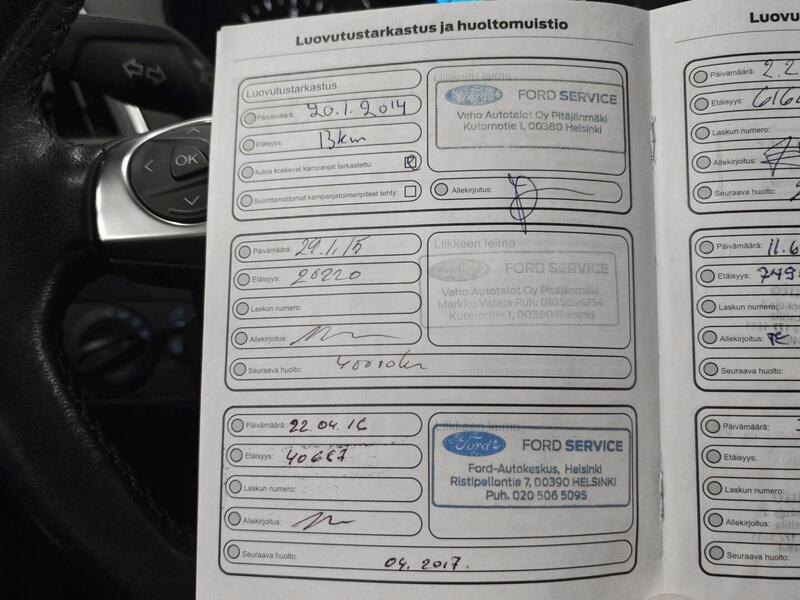 Luovutustarkastus ja huoltomuistio
Luovutustarkastus
Päivämäärä: 20.1.2014
Etäisyys: 13km
Autoa koskevat kampanjat tarkastettu:
Suorittamattomat kampanjatoimenpiteet tehty:
Liikkeen leima
Ford FORD SERVICE
Veho Autotalot Oy Pitäjänmäki
Kutomotie 1, 00380 Helsinki
Allekirjoitus:
Päivämäärä: 29.1.15
Etäisyys: 26220
Laskun numero:
Allekirjoitus:
Seuraava huolto: 40010km
Liikkeen leima
FORD SERVICE
Veho Autotalot Oy Pitäjänmäki
Markku Vataja Puh. 0105696754
Kutomotie 1, 00380 Helsinki
Päivämäärä: 22.04.16
Etäisyys: 40667
Laskun numero:
Allekirjoitus:
Seuraava huolto: 04.2017.
Liikkeen leima
Ford FORD SERVICE
Ford-Autokeskus, Helsinki
Ristipellontie 7, 00390 HELSINKI
Puh. 020 506 5095
Luovu
Päivämäärä: 2.2
Etäisyys: 616
Laskun numero:
Allekirjoitus:
Seuraava huolto:
Päivämäärä: 11.6
Etäisyys: 749
Laskun numero:
Allekirjoitus:
Seuraava huolto:
Päivämäärä:
Etäisyys:
Laskun numero:
Allekirjoitus:
Seuraava huolto:
OK